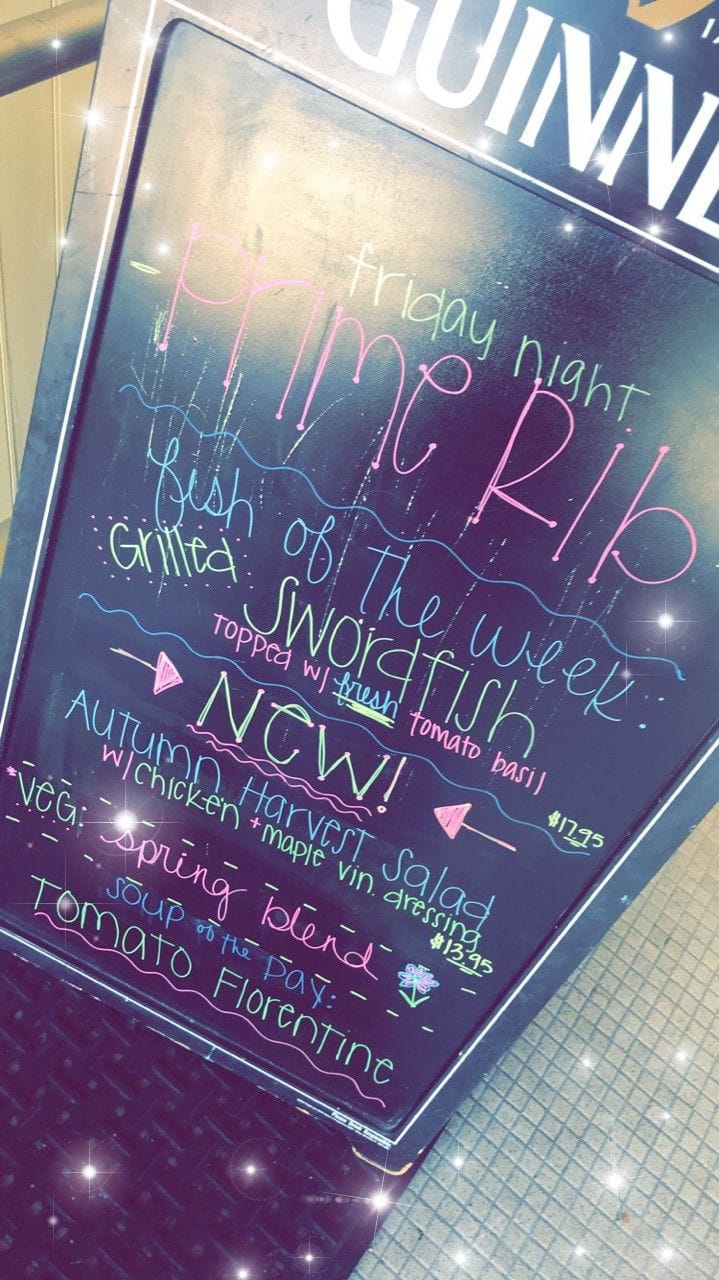 GUINNE
friday night
Prime Rib
fish of the week:
Grilled Swordfish
Topped w/ fresh tomato basil
$17.95
NEW!
Autumn Harvest Salad
w/ chicken + maple vin. dressing
$13.95
*Veg: spring blend
soup of the Day:
Tomato Florentine
Please Drink Responsibly